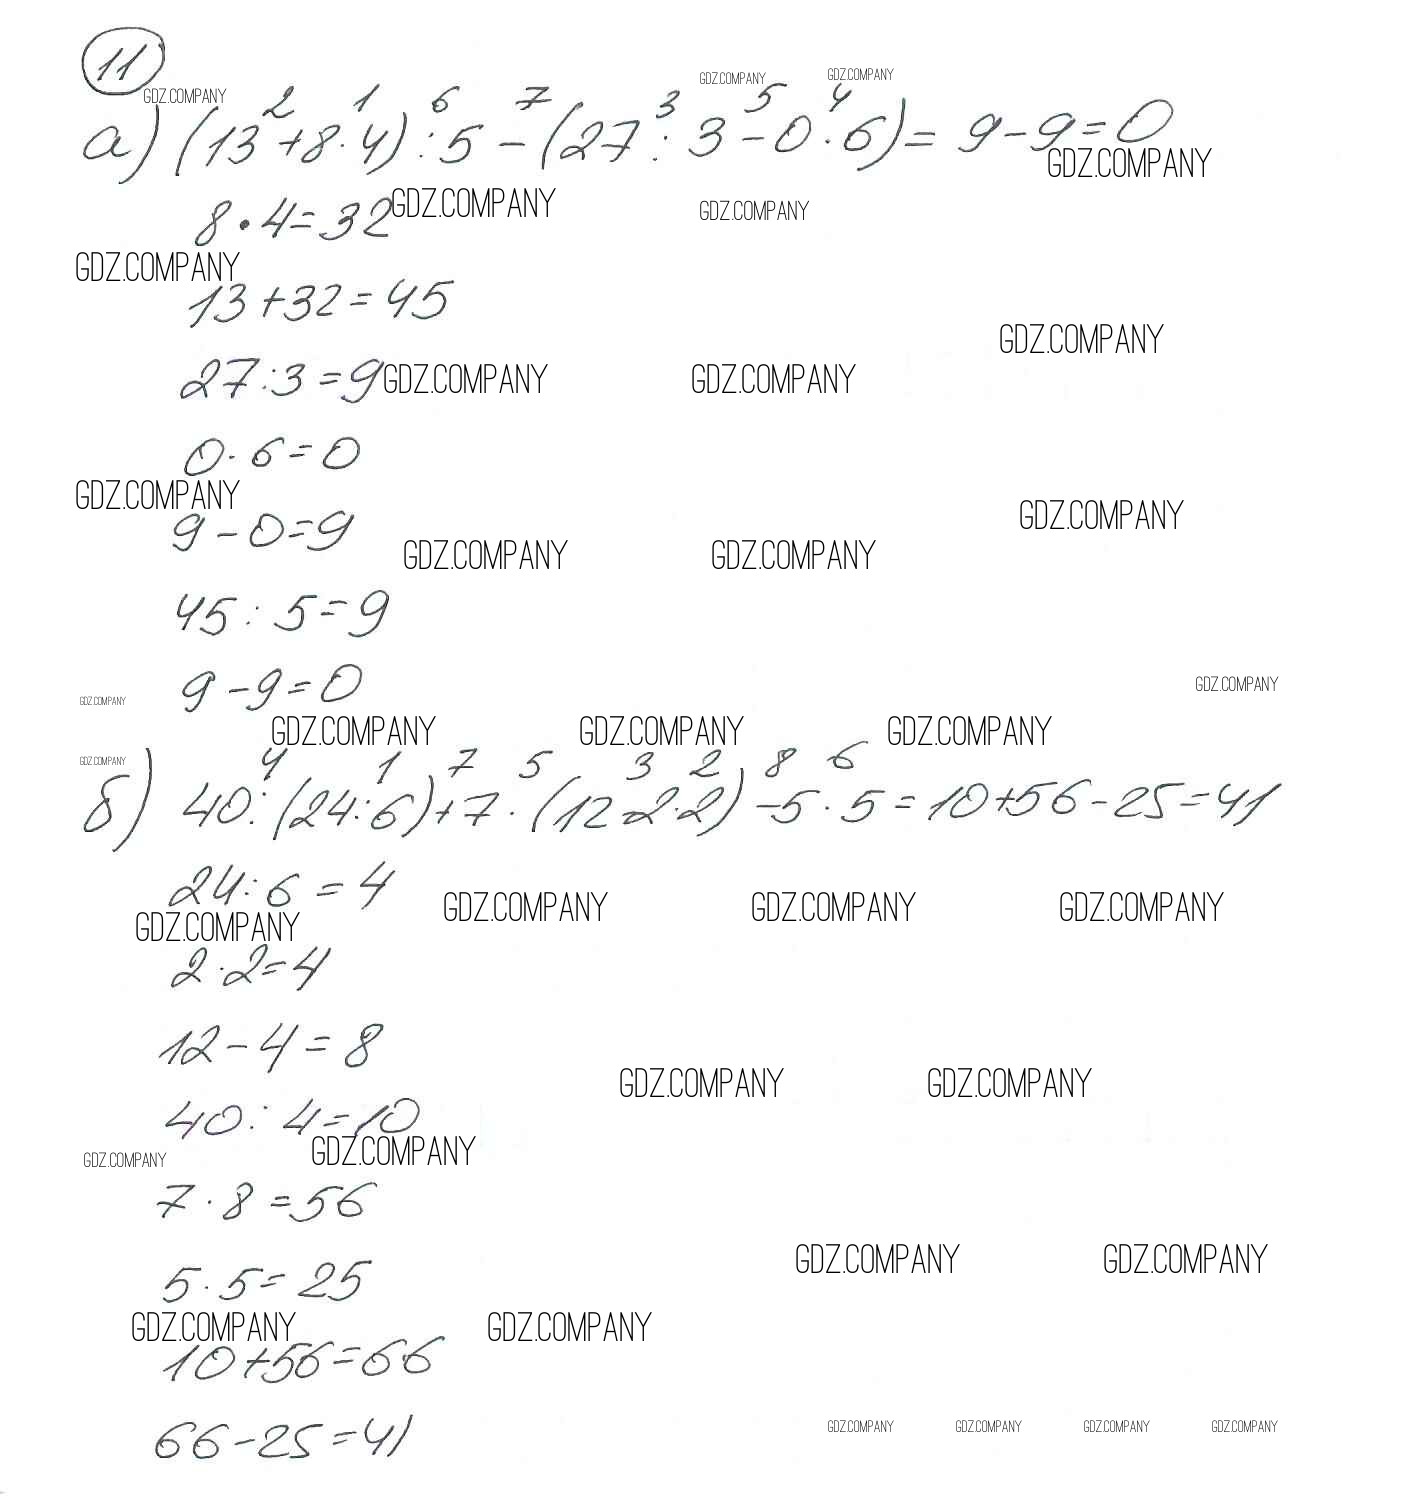 11
GDZ.COMPANY GDZ.COMPANY GDZ.COMPANY
2 1 6 7 3 5 4
а) (13+8·4):5-(27:3-0·6)= 9-9=0
GDZ.COMPANY
8·4=32 GDZ.COMPANY GDZ.COMPANY
GDZ.COMPANY
13+32=45
GDZ.COMPANY
27:3=9 GDZ.COMPANY GDZ.COMPANY
0·6=0
GDZ.COMPANY GDZ.COMPANY
9-0=9
GDZ.COMPANY GDZ.COMPANY
45:5=9
9-9=0
GDZ.COMPANY GDZ.COMPANY
GDZ.COMPANY GDZ.COMPANY GDZ.COMPANY
GDZ.COMPANY
4 1 7 5 3 2 8 6
б) 40:(24:6)+7·(12-2·2)-5·5=10+56-25=41
24:6=4
GDZ.COMPANY GDZ.COMPANY GDZ.COMPANY GDZ.COMPANY
2·2=4
12-4=8
GDZ.COMPANY GDZ.COMPANY
40:4=10
GDZ.COMPANY GDZ.COMPANY
7·8=56
GDZ.COMPANY GDZ.COMPANY
5·5=25
GDZ.COMPANY GDZ.COMPANY
10+56=66
66-25=41
GDZ.COMPANY GDZ.COMPANY GDZ.COMPANY GDZ.COMPANY